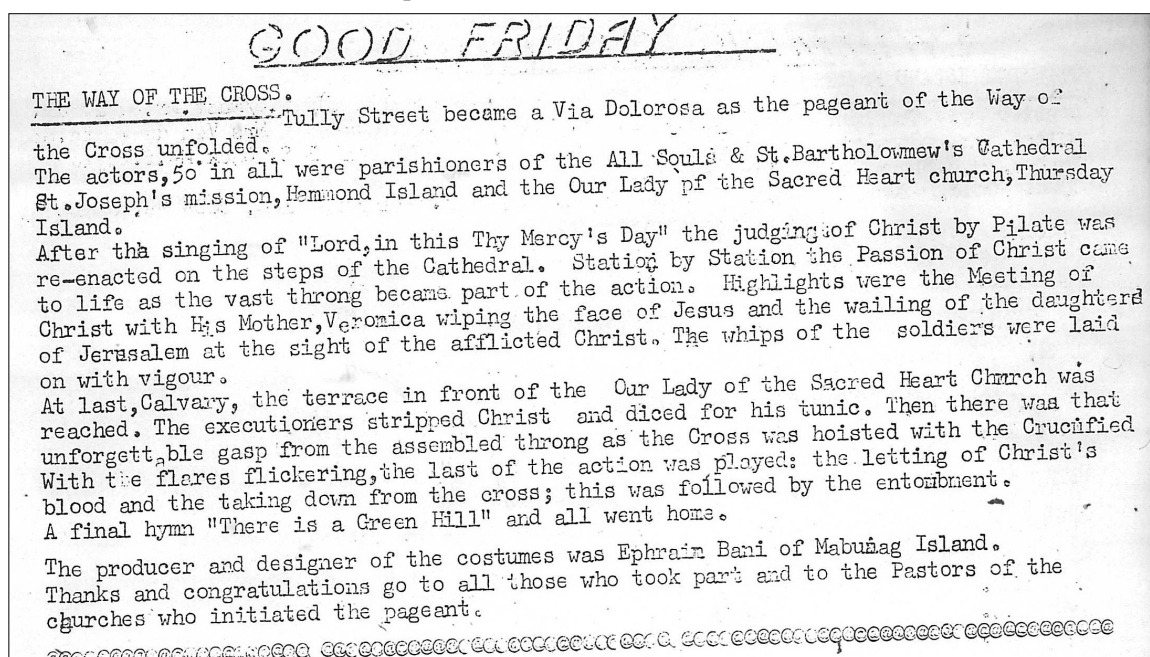 GOOD FRIDAY
THE WAY OF THE CROSS.
Tully Street became a Via Dolorosa as the pageant of the Way of
the Cross unfolded.
The actors,50 in all were parishioners of the All Souls & St.Bartholowmew's Cathedral
St.Joseph's mission,Hammond Island and the Our Lady of the Sacred Heart church,Thursday
Island.
After tha singing of "Lord,in this Thy Mercy's Day" the judging of Christ by Pilate was
re-enacted on the steps of the Cathedral. Station by Station the Passion of Christ came
to life as the vast throng became part of the action. Highlights were the Meeting of
Christ with His Mother,Veronica wiping the face of Jesus and the wailing of the daughterd
of Jerusalem at the sight of the afflicted Christ. The whips of the soldiers were laid
on with vigour.
At last,Calvary, the terrace in front of the Our Lady of the Sacred Heart Church was
reached. The executioners stripped Christ and diced for his tunic. Then there was that
unforgettable gasp from the assembled throng as the Cross was hoisted with the Crucified
With the flares flickering,the last of the action was played: the letting of Christ's
blood and the taking down from the cross; this was followed by the entombment.
A final hymn "There is a Green Hill" and all went home.
The producer and designer of the costumes was Ephraim Bani of Mabuiag Island.
Thanks and congratulations go to all those who took part and to the Pastors of the
churches who initiated the pageant.